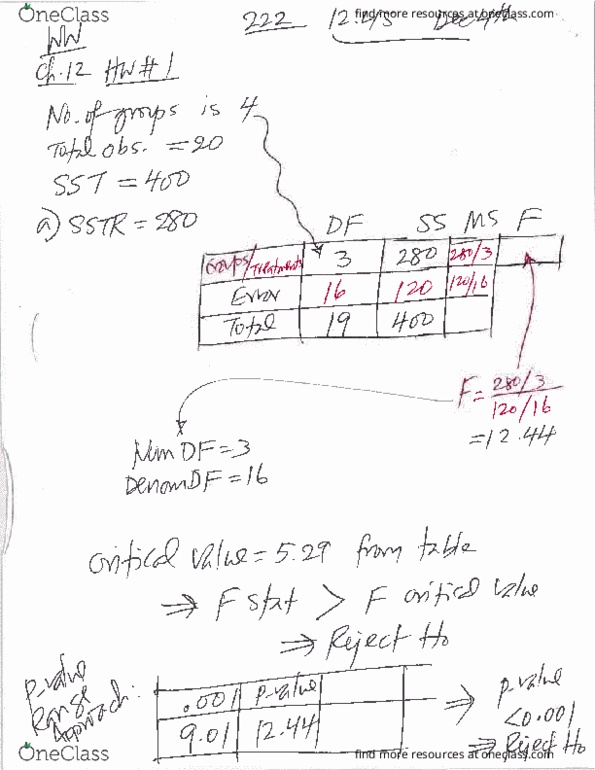 OneClass
find more resources at oneclass.com
222 12.
WW
Ch.12 HW#1
No. of groups is 4
Total obs. = 20
SST = 400
a) SSTR = 280
DF SS MS F
Groups/Treatments 3 280 280/3
Error 16 120 120/16
Total 19 400
F = 280/3
120/16
= 12.44
Num DF = 3
Denom DF = 16
critical value = 5.29 from table
⇒ F stat > F critical value
⇒ Reject Ho
P-value Range Approach:
.001 P-value
9.01 12.44
⇒ p-value
<0.001
⇒ Reject Ho
OneClass
find more resources at oneclass.com